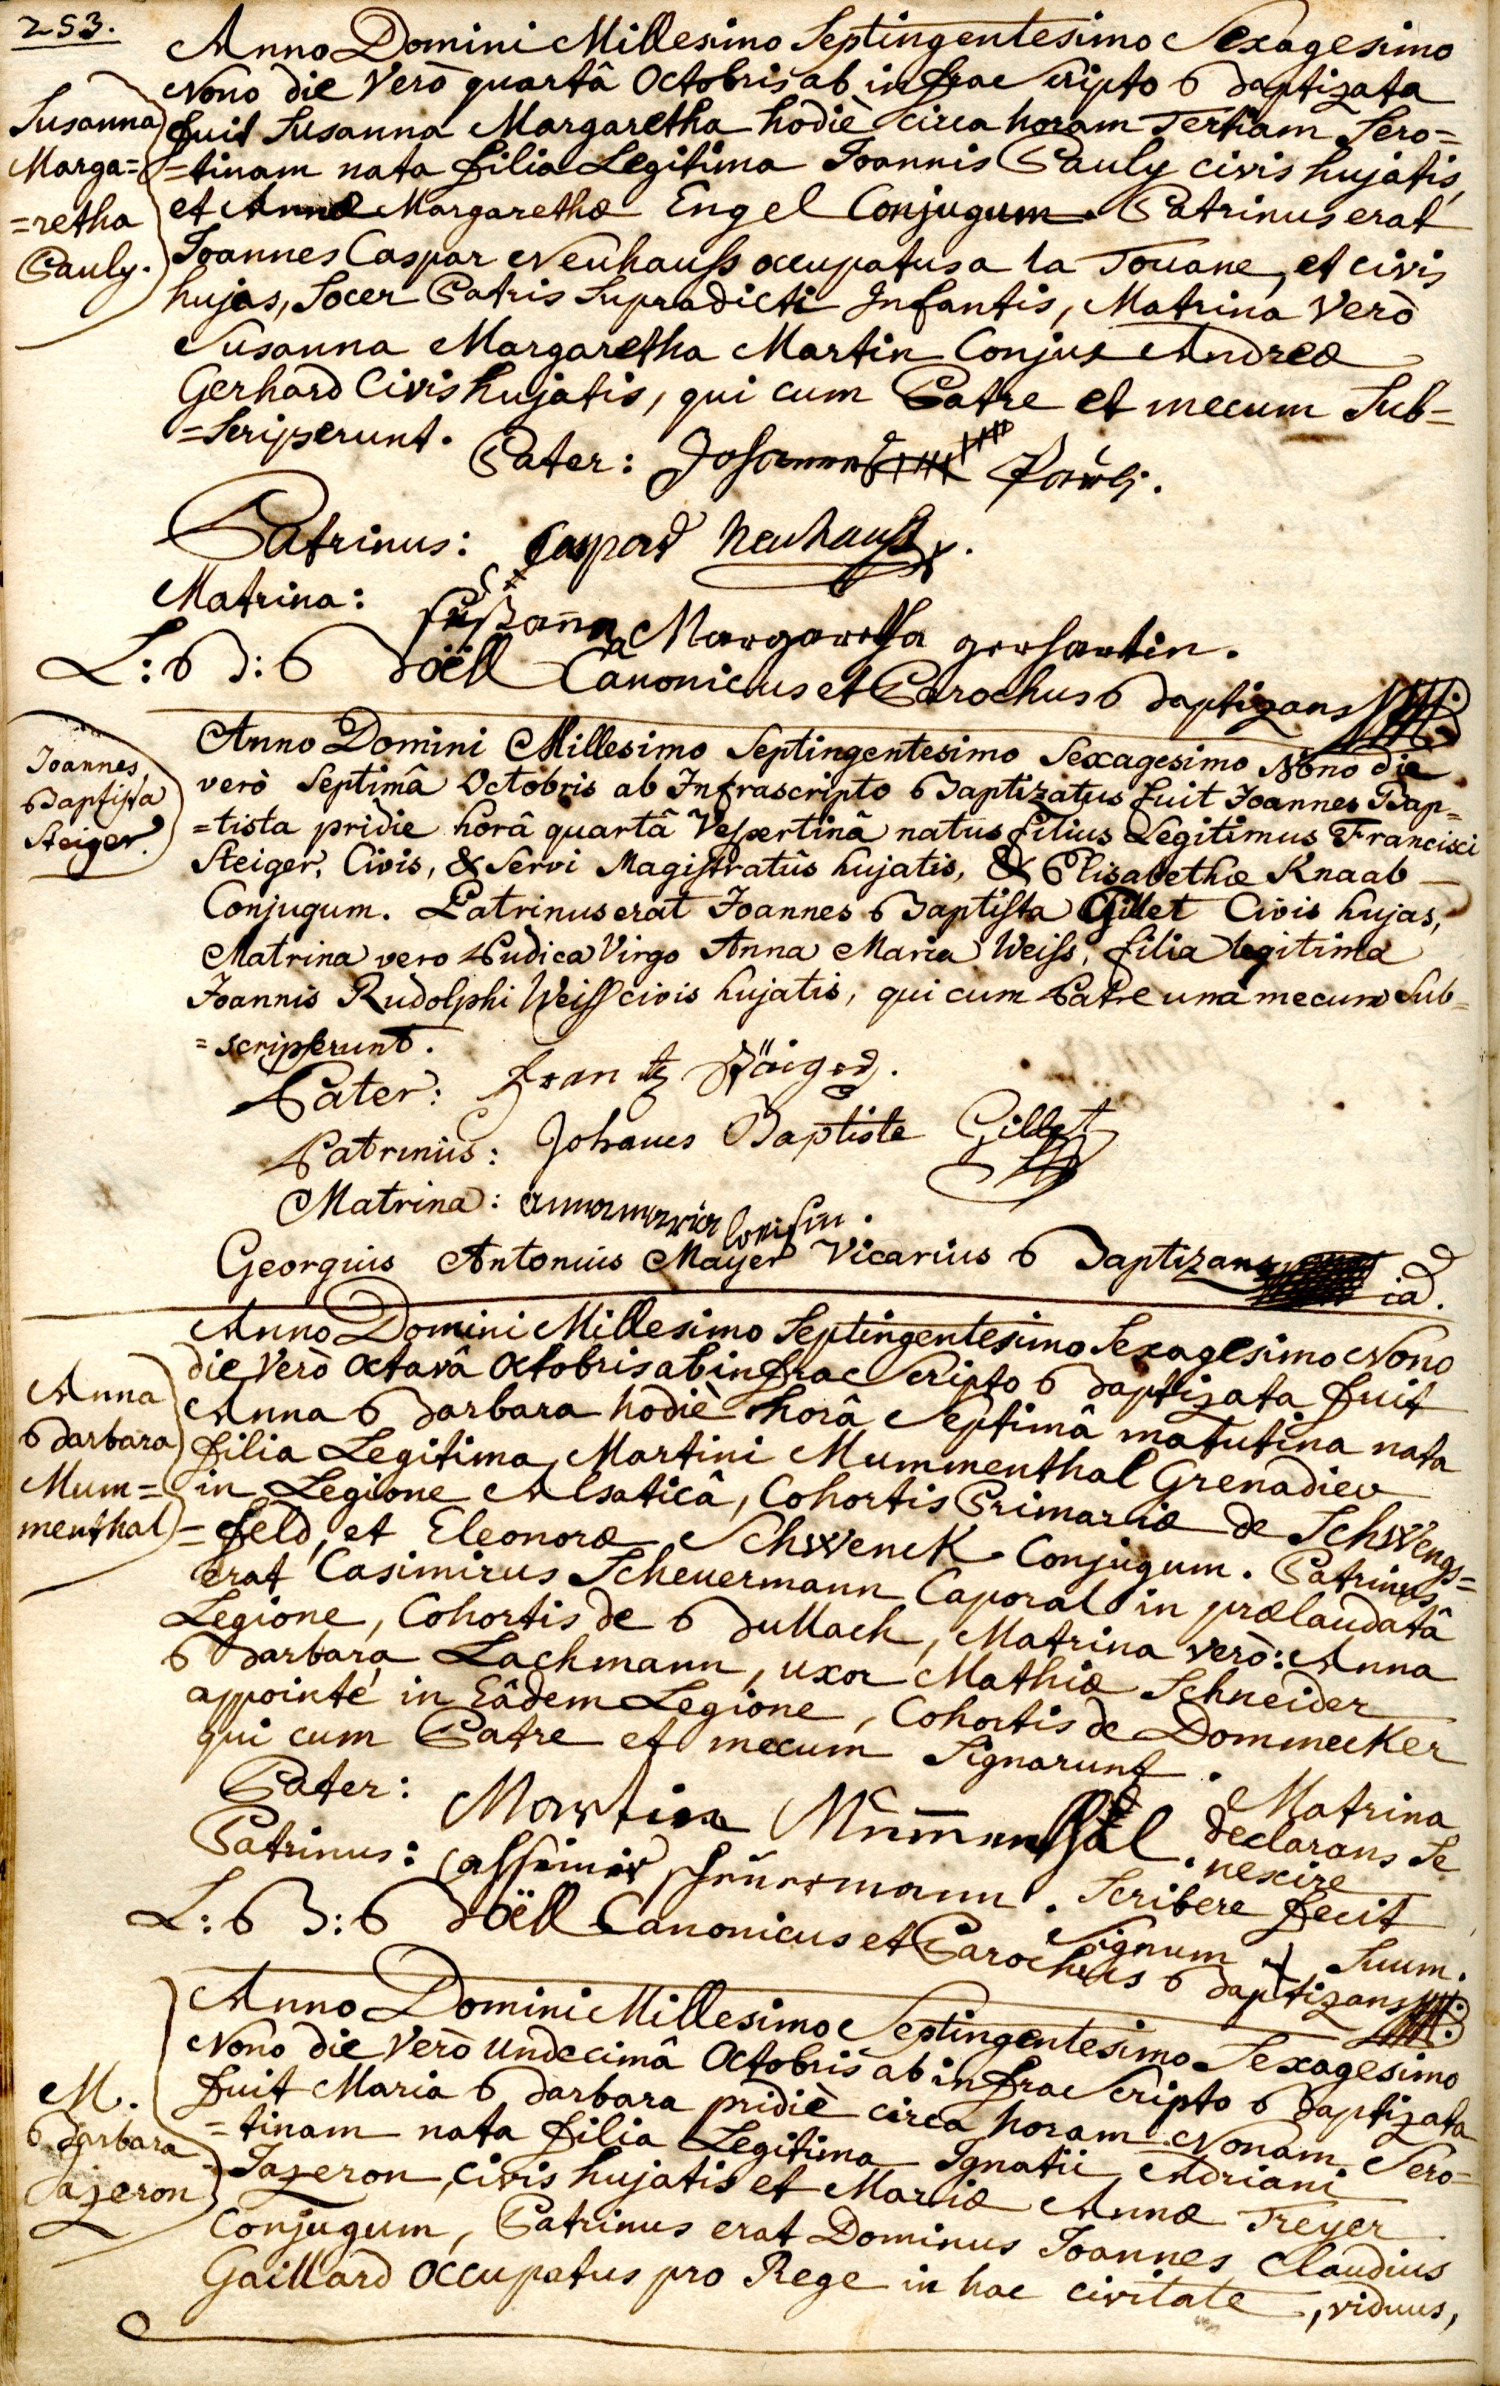 253.
Susanna
Marga=
=retha
Pauly.
Anno Domini Millesimo Septingentesimo Sexagesimo
Nono die Verò quartâ Octobris ab infrascripto Baptizata
fuit Susanna Margaretha hodiè circa horam Tertiam Sero=
=tinam nata filia Legitima Joannis Pauly civis hujatis,
et Annæ Margarethæ Engel Conjugum. Patrinus erat
Joannes Caspar Neuhauss occupatus a la Douane, et civis
hujas, Socer Patris Supradicti Infantis, Matrina Verò
Susanna Margaretha Martin Conjux Andreæ
Gerhard Civis hujatis, qui cum Patre et mecum Sub=
=scripserunt.
Pater: Johannes Pauli.
Patrinus: Caspar Neuhauss.
Matrina: Susanna Margaretha gerhartin.
L: B: Böell Canonicus et Parochus Baptizans
Joannes
Baptista
Steiger.
Anno Domini Millesimo Septingentesimo Sexagesimo Nono die
verò Septimâ Octobris ab Infrascripto Baptizatus fuit Joannes Bap=
=tista pridie horâ quartâ Vespertinâ natus filius Legitimus Francisci
Steiger, Civis, & Servi Magistratûs hujatis, & Elisabethæ Knaab
Conjugum. Patrinus erat Joannes Baptista Gillet Civis hujas,
Matrina vero Pudica Virgo Anna Maria Weiss, filia legitima
Joannis Rudolphi Weiss civis hujatis, qui cum Patre unà mecum Sub=
=scripserunt.
Pater: Frantz Stäiger.
Patrinus: Johanes Baptiste Gillet
Matrina: anna maria weisin.
Georgius Antonius Mayer Vicarius Baptizans
Anna
Barbara
Mum=
menthal
Anno Domini Millesimo Septingentesimo Sexagesimo Nono
die Verò octavâ Octobris ab infrascripto Baptizata fuit
Anna Barbara hodiè horâ Septimâ matutina nata
filia Legitima Martini Mummenthal Grenadier
in Legione Alsaticâ, Cohortis Primariæ de Schwengs=
=feld, et Eleonoræ Schwenck Conjugum. Patrinus
erat Casimirus Scheuermann Caporal in prælaudatâ
Legione, Cohortis de Bullach, Matrina verò: Anna
Barbara Lachmann, uxor Mathiæ Schneider
appointé in Eâdem Legione, Cohortis de Dommecker
qui cum Patre et mecum Signarunt.
Pater: Martin Mumenthal.
Patrinus: Cassimir Scheuermann.
Matrina
declarans Se
nescire
Scribere fecit
Signum + Suum.
L: B: Böell Canonicus et Parochus Baptizans
M.
Barbara
Jazeron
Anno Domini Millesimo Septingentesimo Sexagesimo
Nono die Verò undecimâ Octobris ab infrascripto Baptizata
fuit Maria Barbara pridiè circa horam Nonam Sero=
=tinam nata filia Legitima Ignatii Adriani
Jazeron, civis hujatis et Mariæ Annæ Treyer
Conjugum, Patrinus erat Dominus Joannes Claudius
Gaillard occupatus pro Rege in hac civitate, viduus,